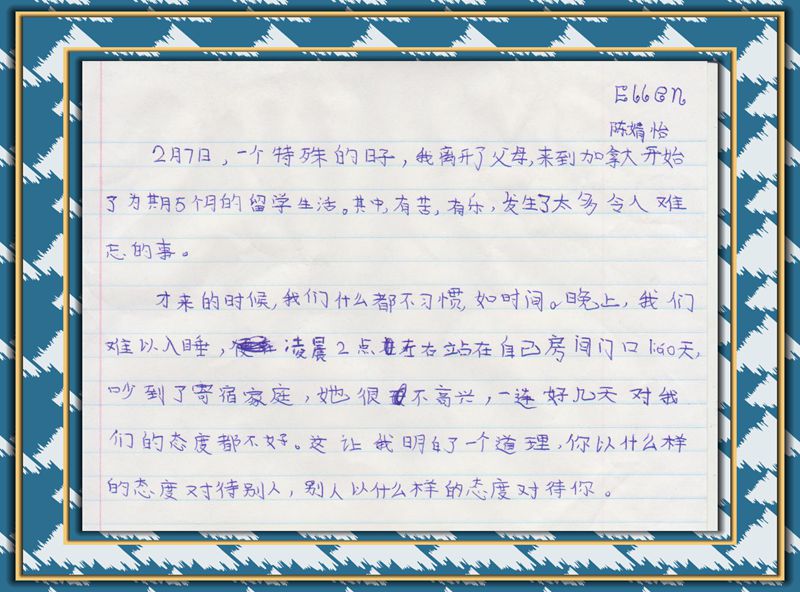 Ellen
陈婧怡
2月7日，一个特殊的日子，我离开了父母，来到加拿大开始
了为期5个月的留学生活。其中，有苦，有乐，发生了太多令人难
忘的事。
才来的时候，我们什么都不习惯，如时间。晚上，我们
难以入睡，凌晨2点左右站在自己房间门口聊天，
吵到了寄宿家庭，她很不高兴，一连好几天对我
们的态度都不好。这让我明白了一个道理，你以什么样
的态度对待别人，别人以什么样的态度对待你。